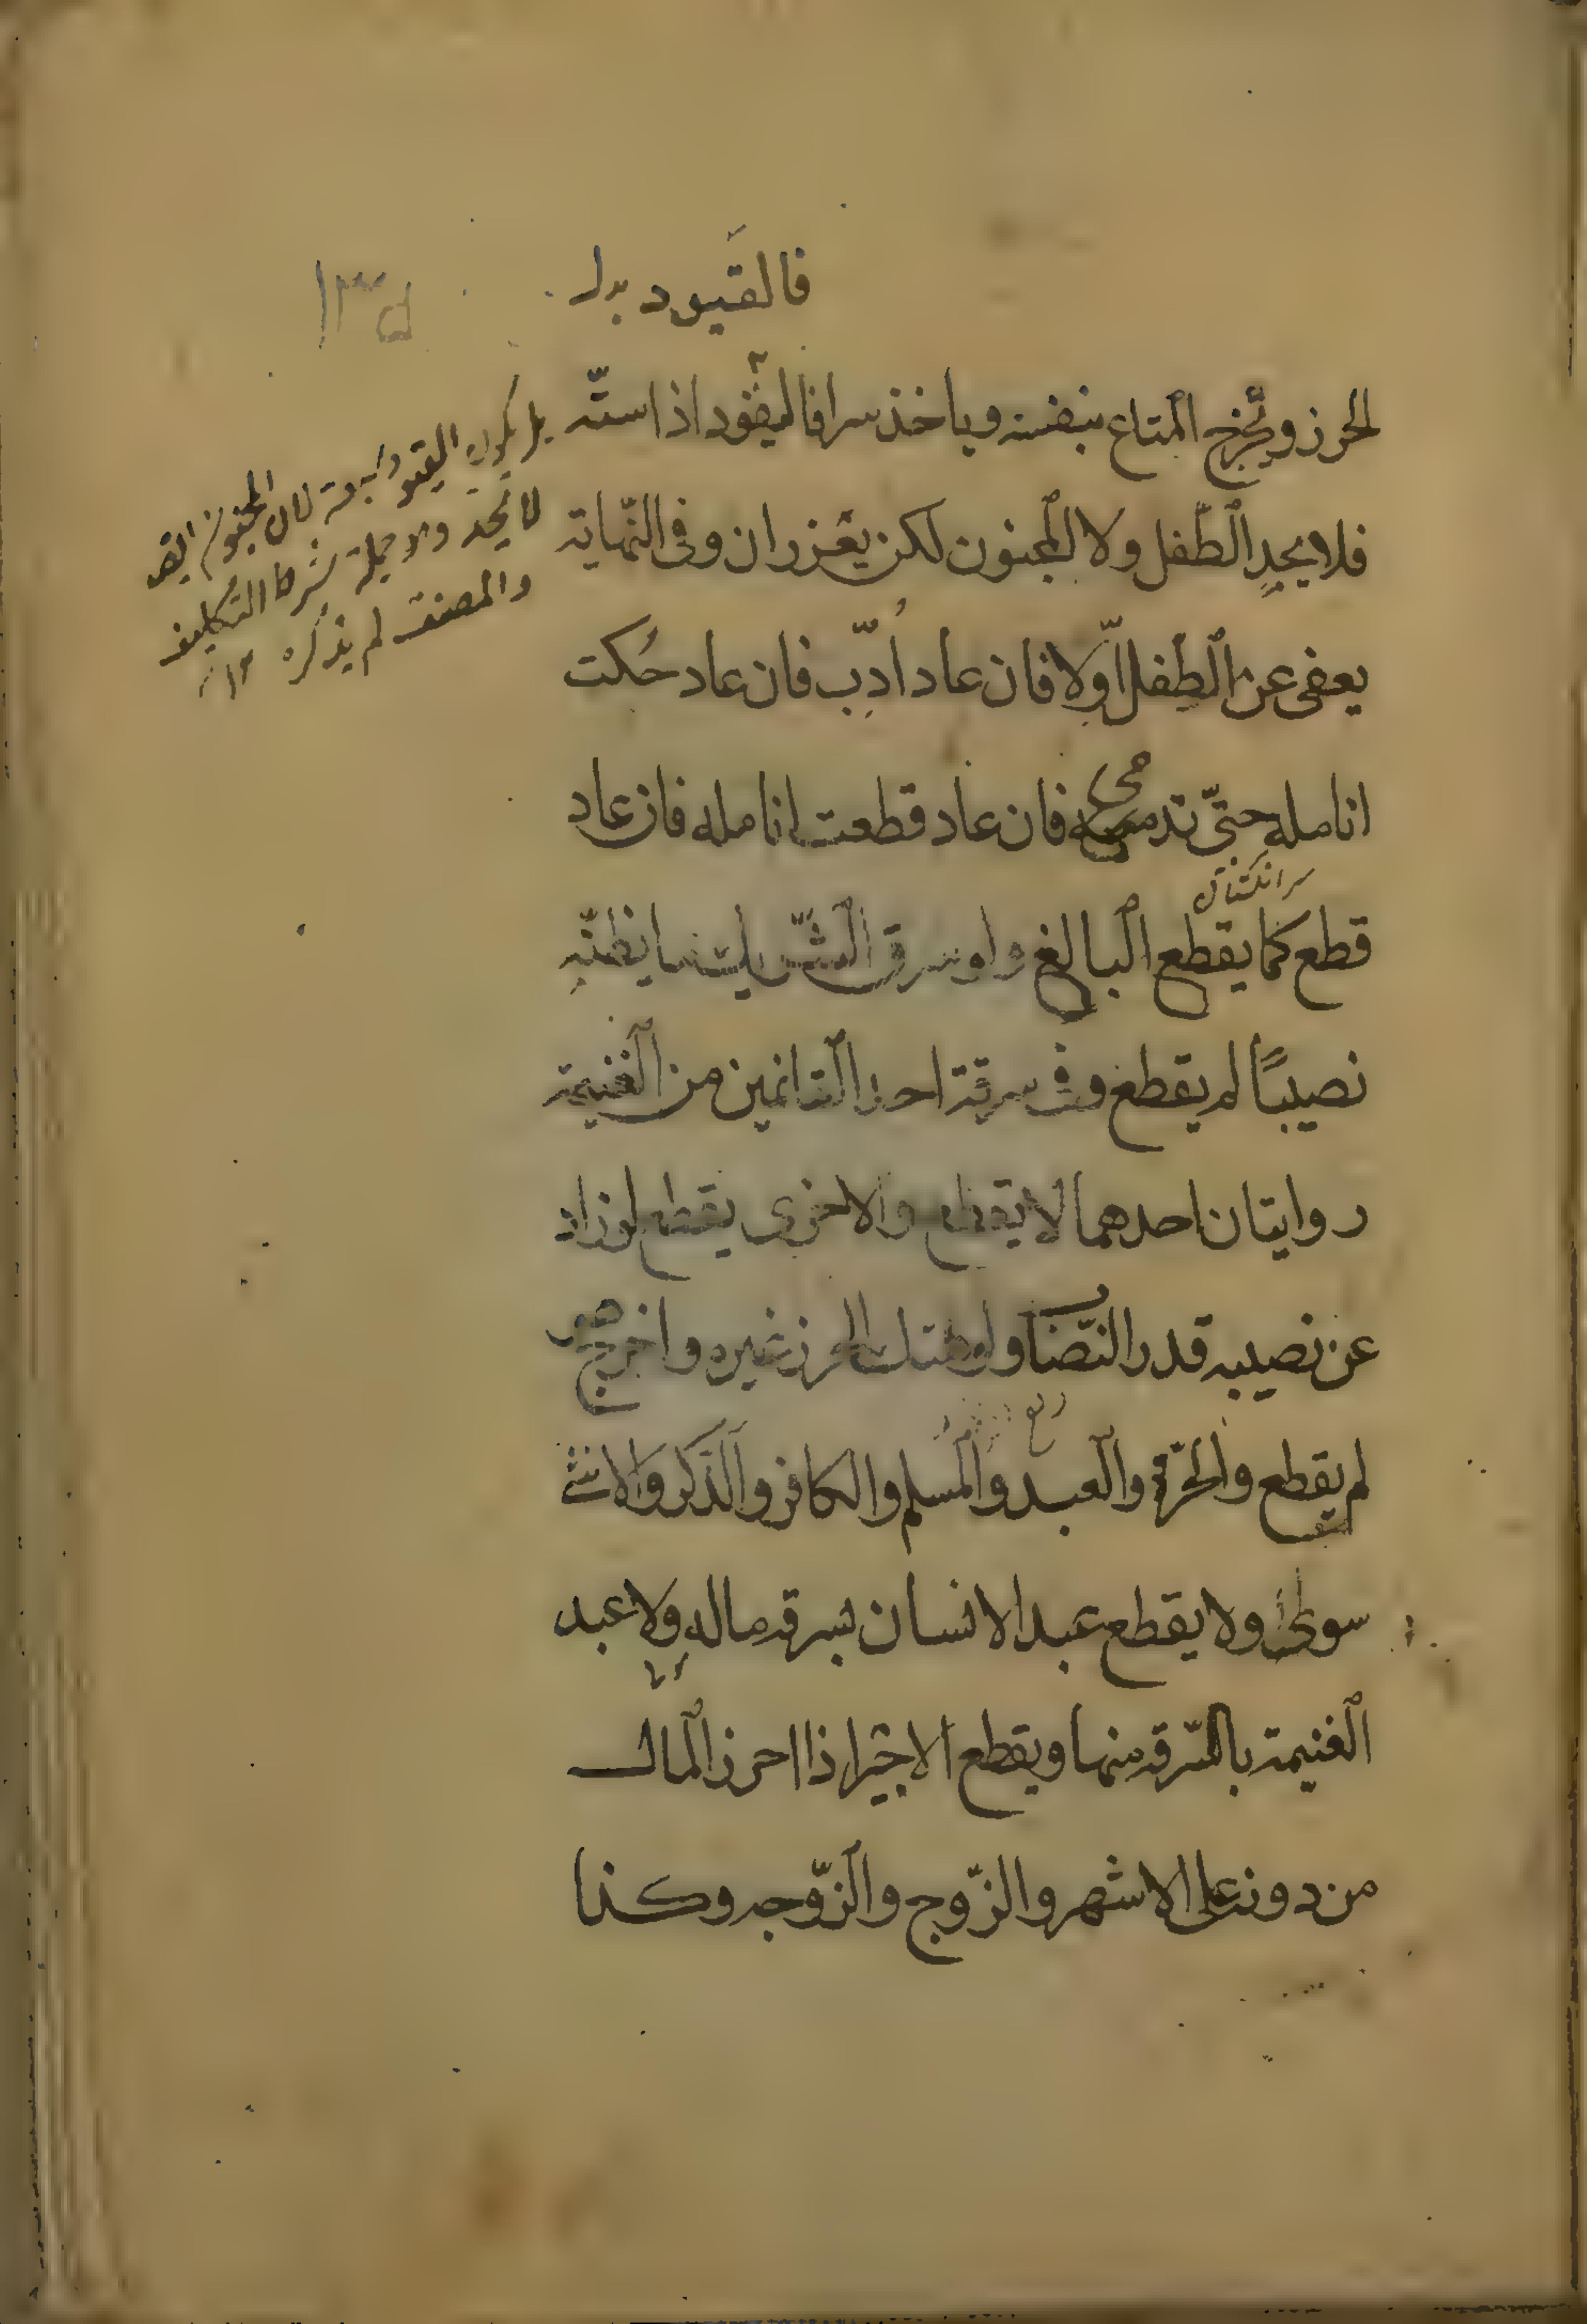 فالقيود بدل
الحرز ويخرج المتاع بنفسه وياخذ سرا فاليقود اذا ستّه
فلا يحد الطّفل ولا المجنون لكن يعزران وفى النّهاية
يعفى عن الطّفل اوّلا فان عاد اُدّب فان عاد حُكت
انامله حتّى تدمى فان عاد قطعت انامله فان عاد
سر انگشتان
قطع كما يقطع البالغ ولو سرق الشّريك ما يظنّه
نصيبًا لم يقطع وفى سرقة احد الغانمين من الغنيمة
روايتان احدهما لا يقطع والاخرى يقطع لو زاد
عن نصيبه قدر النّصاب ولو هتك الحرز غيره واخرج هو
لم يقطع والحرّ والعبد والمسلم والكافر والذّكر والانثى
سواء ولا يقطع عبد الانسان بسرقه ماله ولا عبد
الغنيمة بالسّرقه منها ويقطع الاجير اذا احرز المال
من دونه على الاشهر والزّوج والزّوجه وكذا
لان المجنون ايضا
لا يحد والاحيلة شرط التكليف
والمصنف لم يذكره ١٢